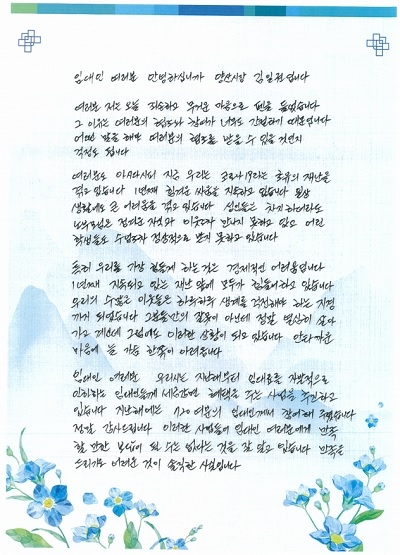 임대인 여러분 안녕하십니까 양산시장 김일권입니다
여러분 저는 오늘 죄송하고 무거운 마음으로 펜을 들었습니다
그 이유는 여러분의 협조와 참여가 너무도 간절하기 때문입니다
어떤 말을 해야 여러분의 협조를 받을 수 있을 것인지
걱정도 됩니다
여러분도 아시다시피 지금 우리는 코로나19라는 초유의 재난을
겪고 있습니다 1년째 힘겨운 싸움을 지속하고 있습니다 일상
생활에도 큰 어려움을 겪고 있습니다 성인들은 차치하더라도
노부모님은 정다운 자식과 이웃도 만나지 못하고 있고 어린
학생들도 수업도 정상적으로 받지 못하고 있습니다
특히 우리를 가장 힘들게 하는 것은 경제적인 어려움입니다
1년째 지속되고 있는 재난 앞에 모두가 힘들어하고 있습니다
우리의 수많은 이웃들은 하루하루 생계를 걱정해야 하는 지경
까지 되었습니다 그분들만의 잘못이 아닌데 정말 열심히 살아
가고 계신데 그럼에도 이러한 상황이 되고 있습니다 안타까운
마음에 늘 가슴 한쪽이 아려옵니다
임대인 여러분 우리시는 지난해부터 임대료를 자발적으로
인하하는 임대인들께 세금감면 혜택을 주는 사업을 추진하고
있습니다 지난해에는 120여분의 임대인께서 참여해 주셨습니다
정말 감사드립니다 이러한 사업들이 임대인 여러분에게 만족
할 만한 보답이 될 수는 없다는 것을 잘 알고 있습니다 만족을
드리기도 어려운 것이 솔직한 사실입니다